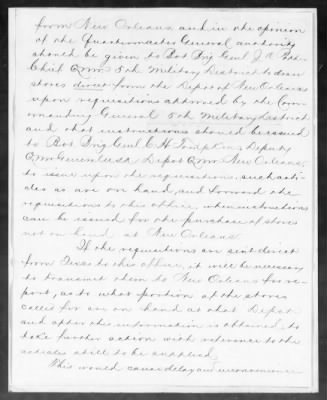 from New Orleans and in the opinion
of the Quartermaster General authority
should be given to Bvt Brig Genl J. A. Pot-
Chief Qmr 5th Military District to draw
stores direct from the Depot of New Orleans
upon requisitions approved by the Com-
manding General 5th Military District
and that instructions should be issued
to Bvt Brig Genl C H Tompkins Deputy
Qmr General USA Depot Qmr New Orleans,
to issue upon the requisitions, such arti-
cles as are on hand, and forward the
requisitions to this office, when instructions
can be issued for the purchase of stores
not on hand at New Orleans.
If the requisitions are sent direct
from Texas to this office, it will be necessary
to transmit them to New Orleans for re-
port, as to what portion of the stores
called for are on hand at that Depot
and after this information is obtained, to
take further action with reference to the
articles still to be supplied,
This would cause delay and inconvenience